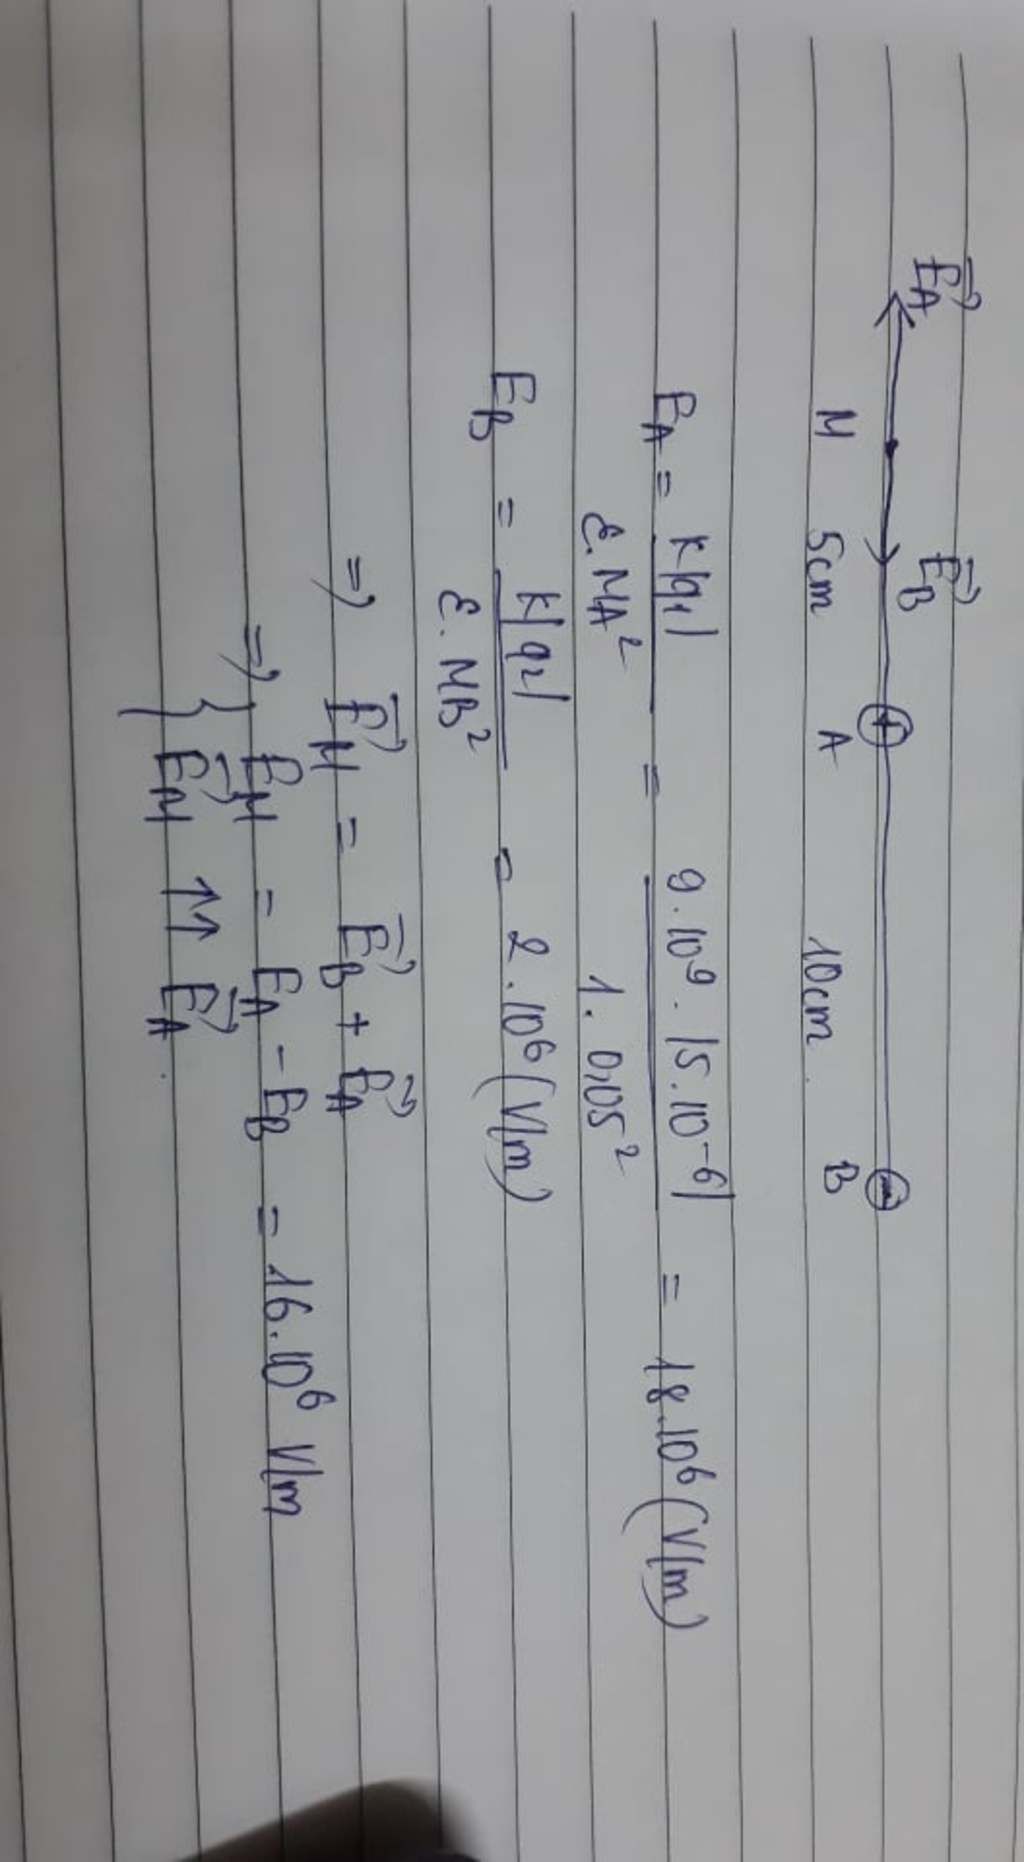 E⃗A E⃗B
M 5cm A 10cm B
EA = k|q1| / ε.MA² = 9.10⁹.|5.10⁻⁶| / 1.0,05² = 18.10⁶ (V/m)
EB = k|q2| / ε.MB² = 2.10⁶ (V/m)
=> E⃗M = E⃗B + E⃗A
=> { EM = EA - EB = 16.10⁶ V/m
E⃗M ↑↑ E⃗A